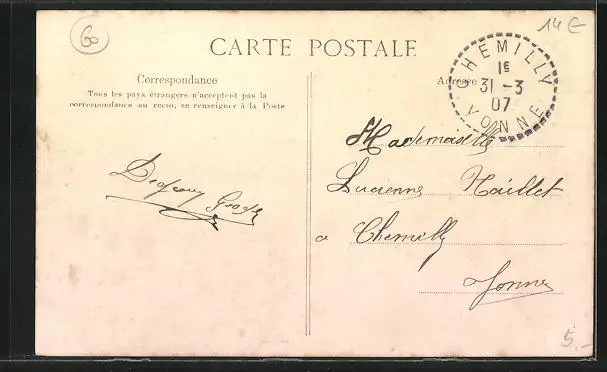 60
14 €
CARTE POSTALE
Correspondance
Tous les pays étrangers n'acceptent pas la
correspondance au recto, se renseigner à la Poste
Adresse
CHEMILLY
1E
31 -3
07
YONNE
Mademoiselle
Lucienne Haillet
a Chemilly
Yonne
5.-